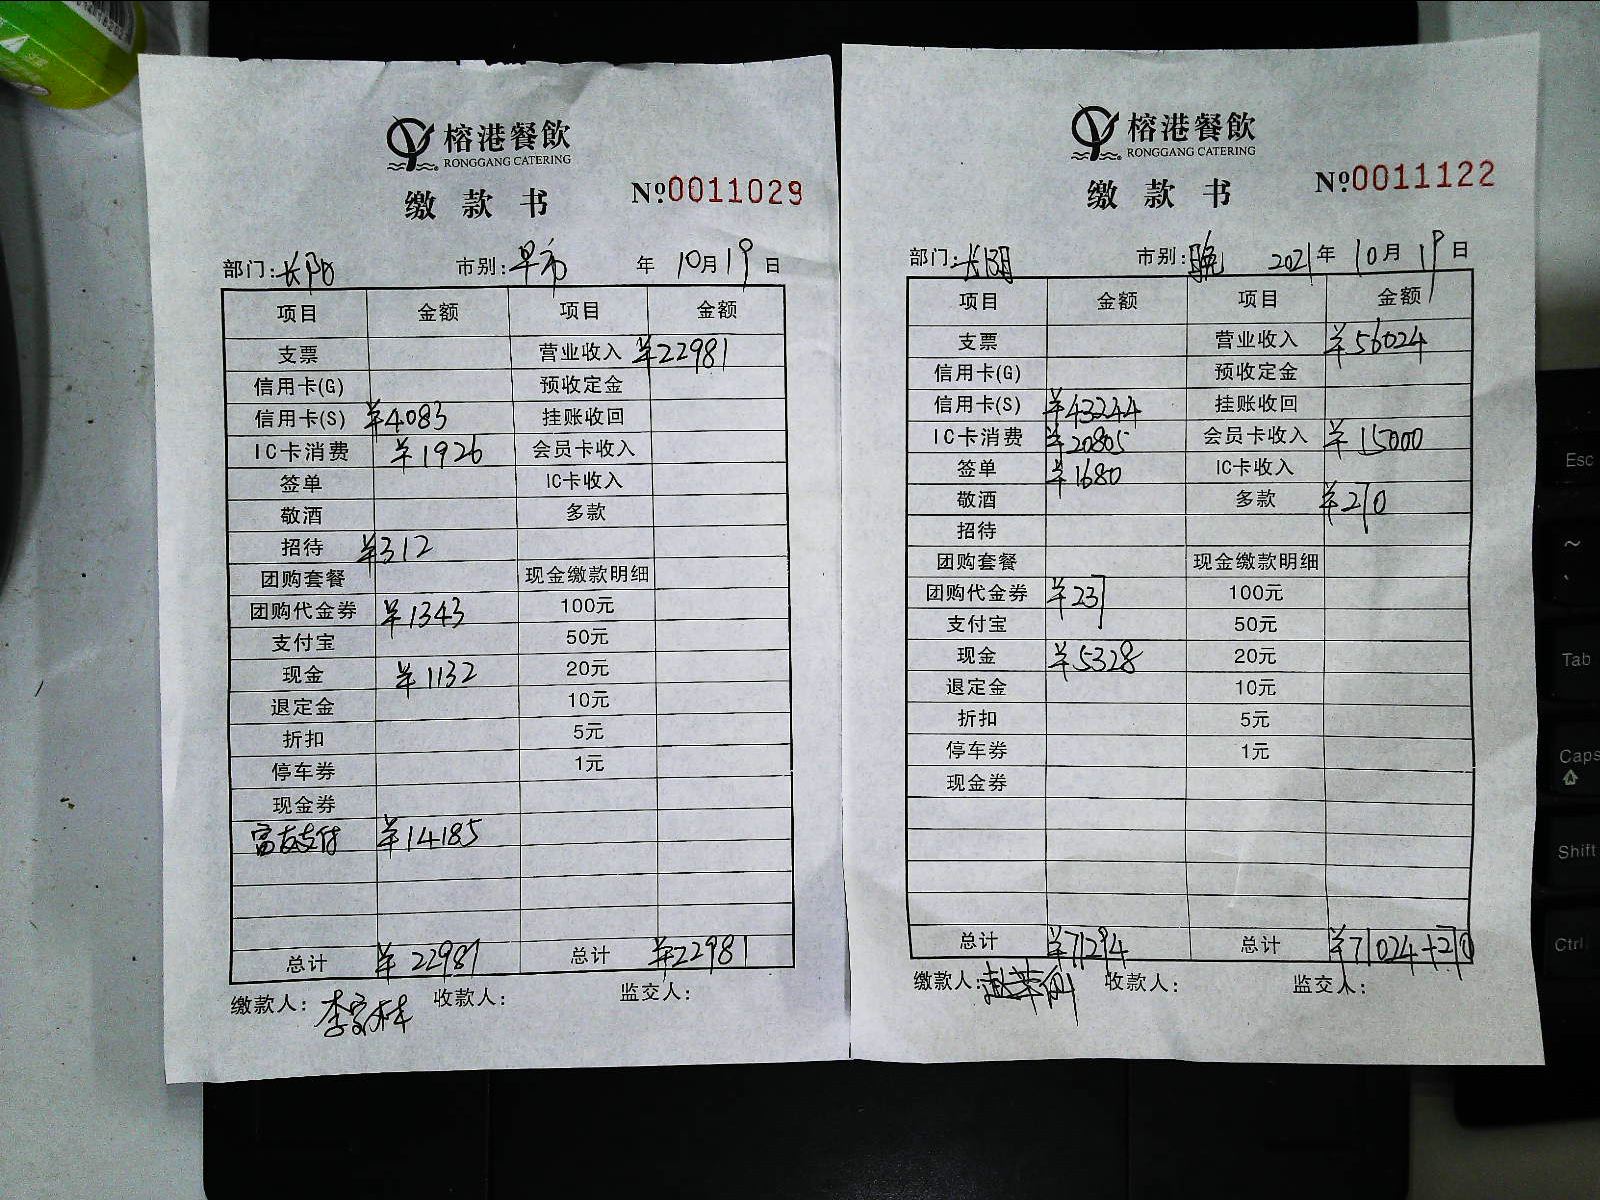 榕港餐飲
RONGGANG CATERING
缴款书 №0011029
部门: 长阳 市别: 早市 年 10月19日
项目 金额 项目 金额
支票 营业收入 ¥22981
信用卡(G) 预收定金
信用卡(S) ¥4083 挂账收回
IC卡消费 ¥1926 会员卡收入
签单 IC卡收入
敬酒 多款
招待 ¥312
团购套餐 现金缴款明细
团购代金券 ¥1343 100元
支付宝 50元
现金 ¥1132 20元
退定金 10元
折扣 5元
停车券 1元
现金券
富友支付 ¥14185
总计 ¥22981 总计 ¥22981
缴款人: 李家林 收款人: 监交人:
榕港餐飲
RONGGANG CATERING
缴款书 №0011122
部门: 长阳 市别: 晚 2021年 10月19日
项目 金额 项目 金额
支票 营业收入 ¥56024
信用卡(G) 预收定金
信用卡(S) ¥43244 挂账收回
IC卡消费 ¥20805 会员卡收入 ¥15000
签单 ¥1680 IC卡收入
敬酒 多款 ¥270
招待
团购套餐 现金缴款明细
团购代金券 ¥237 100元
支付宝 50元
现金 ¥5328 20元
退定金 10元
折扣 5元
停车券 1元
现金券
总计 ¥71294 总计 ¥71024+270
缴款人: 收款人: 监交人:
Esc
~
Tab
Caps
Shift
Ctrl